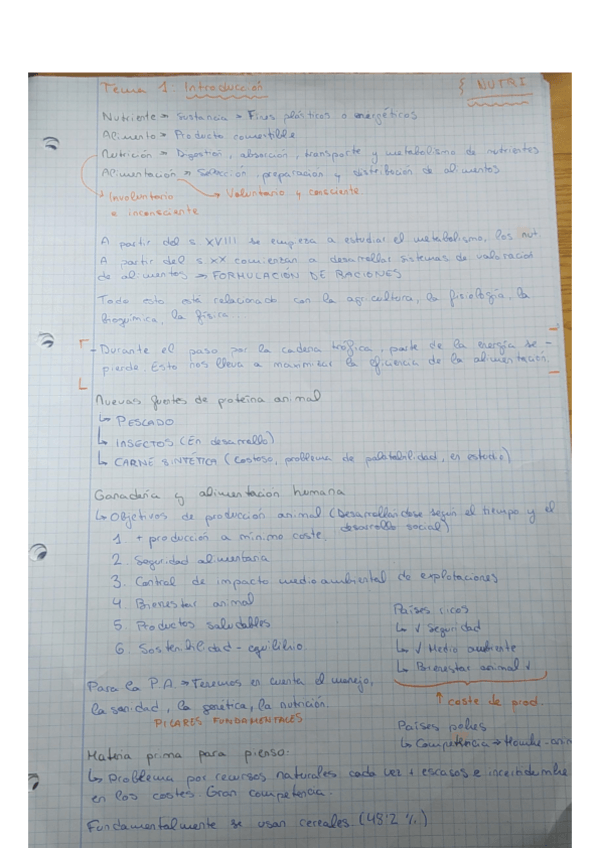 Tema 1 Introducción
{ NUTRI
Nutriente → Sustancia → Fines plásticos o energéticos
Alimento → Producto comestible
Nutrición → Digestión, absorción, transporte y metabolismo de nutrientes
Alimentación → Selección preparación y distribución de alimentos
→ Involuntario e inconsciente
→ Voluntario y consciente
A partir del s. XVIII se empieza a estudiar el metabolismo, los nut.
A partir del s. XX comienzan a desarrollar sistemas de valoración
de alimentos → FORMULACIÓN DE RACIONES
Todo esto está relacionado con la agricultura, la fisiología, la
bioquímica, la física.
- Durante el paso por la cadena trófica, parte de la energía se
pierde. Esto nos lleva a maximizar la eficiencia de la alimentación.
Nuevas fuentes de proteína animal
↳ PESCADO
↳ INSECTOS (En desarrollo)
↳ CARNE SINTÉTICA (Costoso, problema de palatabilidad, en estudio)
Ganadería y alimentación humana
↳ Objetivos de producción animal (Desarrollándose según el tiempo y el
desarrollo social)
1 + producción a mínimo coste.
2. Seguridad alimentaria
3. Control de impacto medioambiental de explotaciones
4. Bienestar animal
5 Productos saludables
6. Sostenibilidad - equilibrio.
Países ricos
↳ ✓ Seguridad
↳ ✓ Medio ambiente
↳ Bienestar animal ✓
↑ coste de prod.
Para la P.A → Tenemos en cuenta el manejo,
la sanidad, la genética, la nutrición.
PILARES FUNDAMENTALES
Países pobres
↳ Competencia → Hombre-anim
Materia prima para pienso:
↳ Problema por recursos naturales cada vez + escasos e incertidumbre
en los costes Gran competencia.
Fundamentalmente se usan cereales (48'2 %)